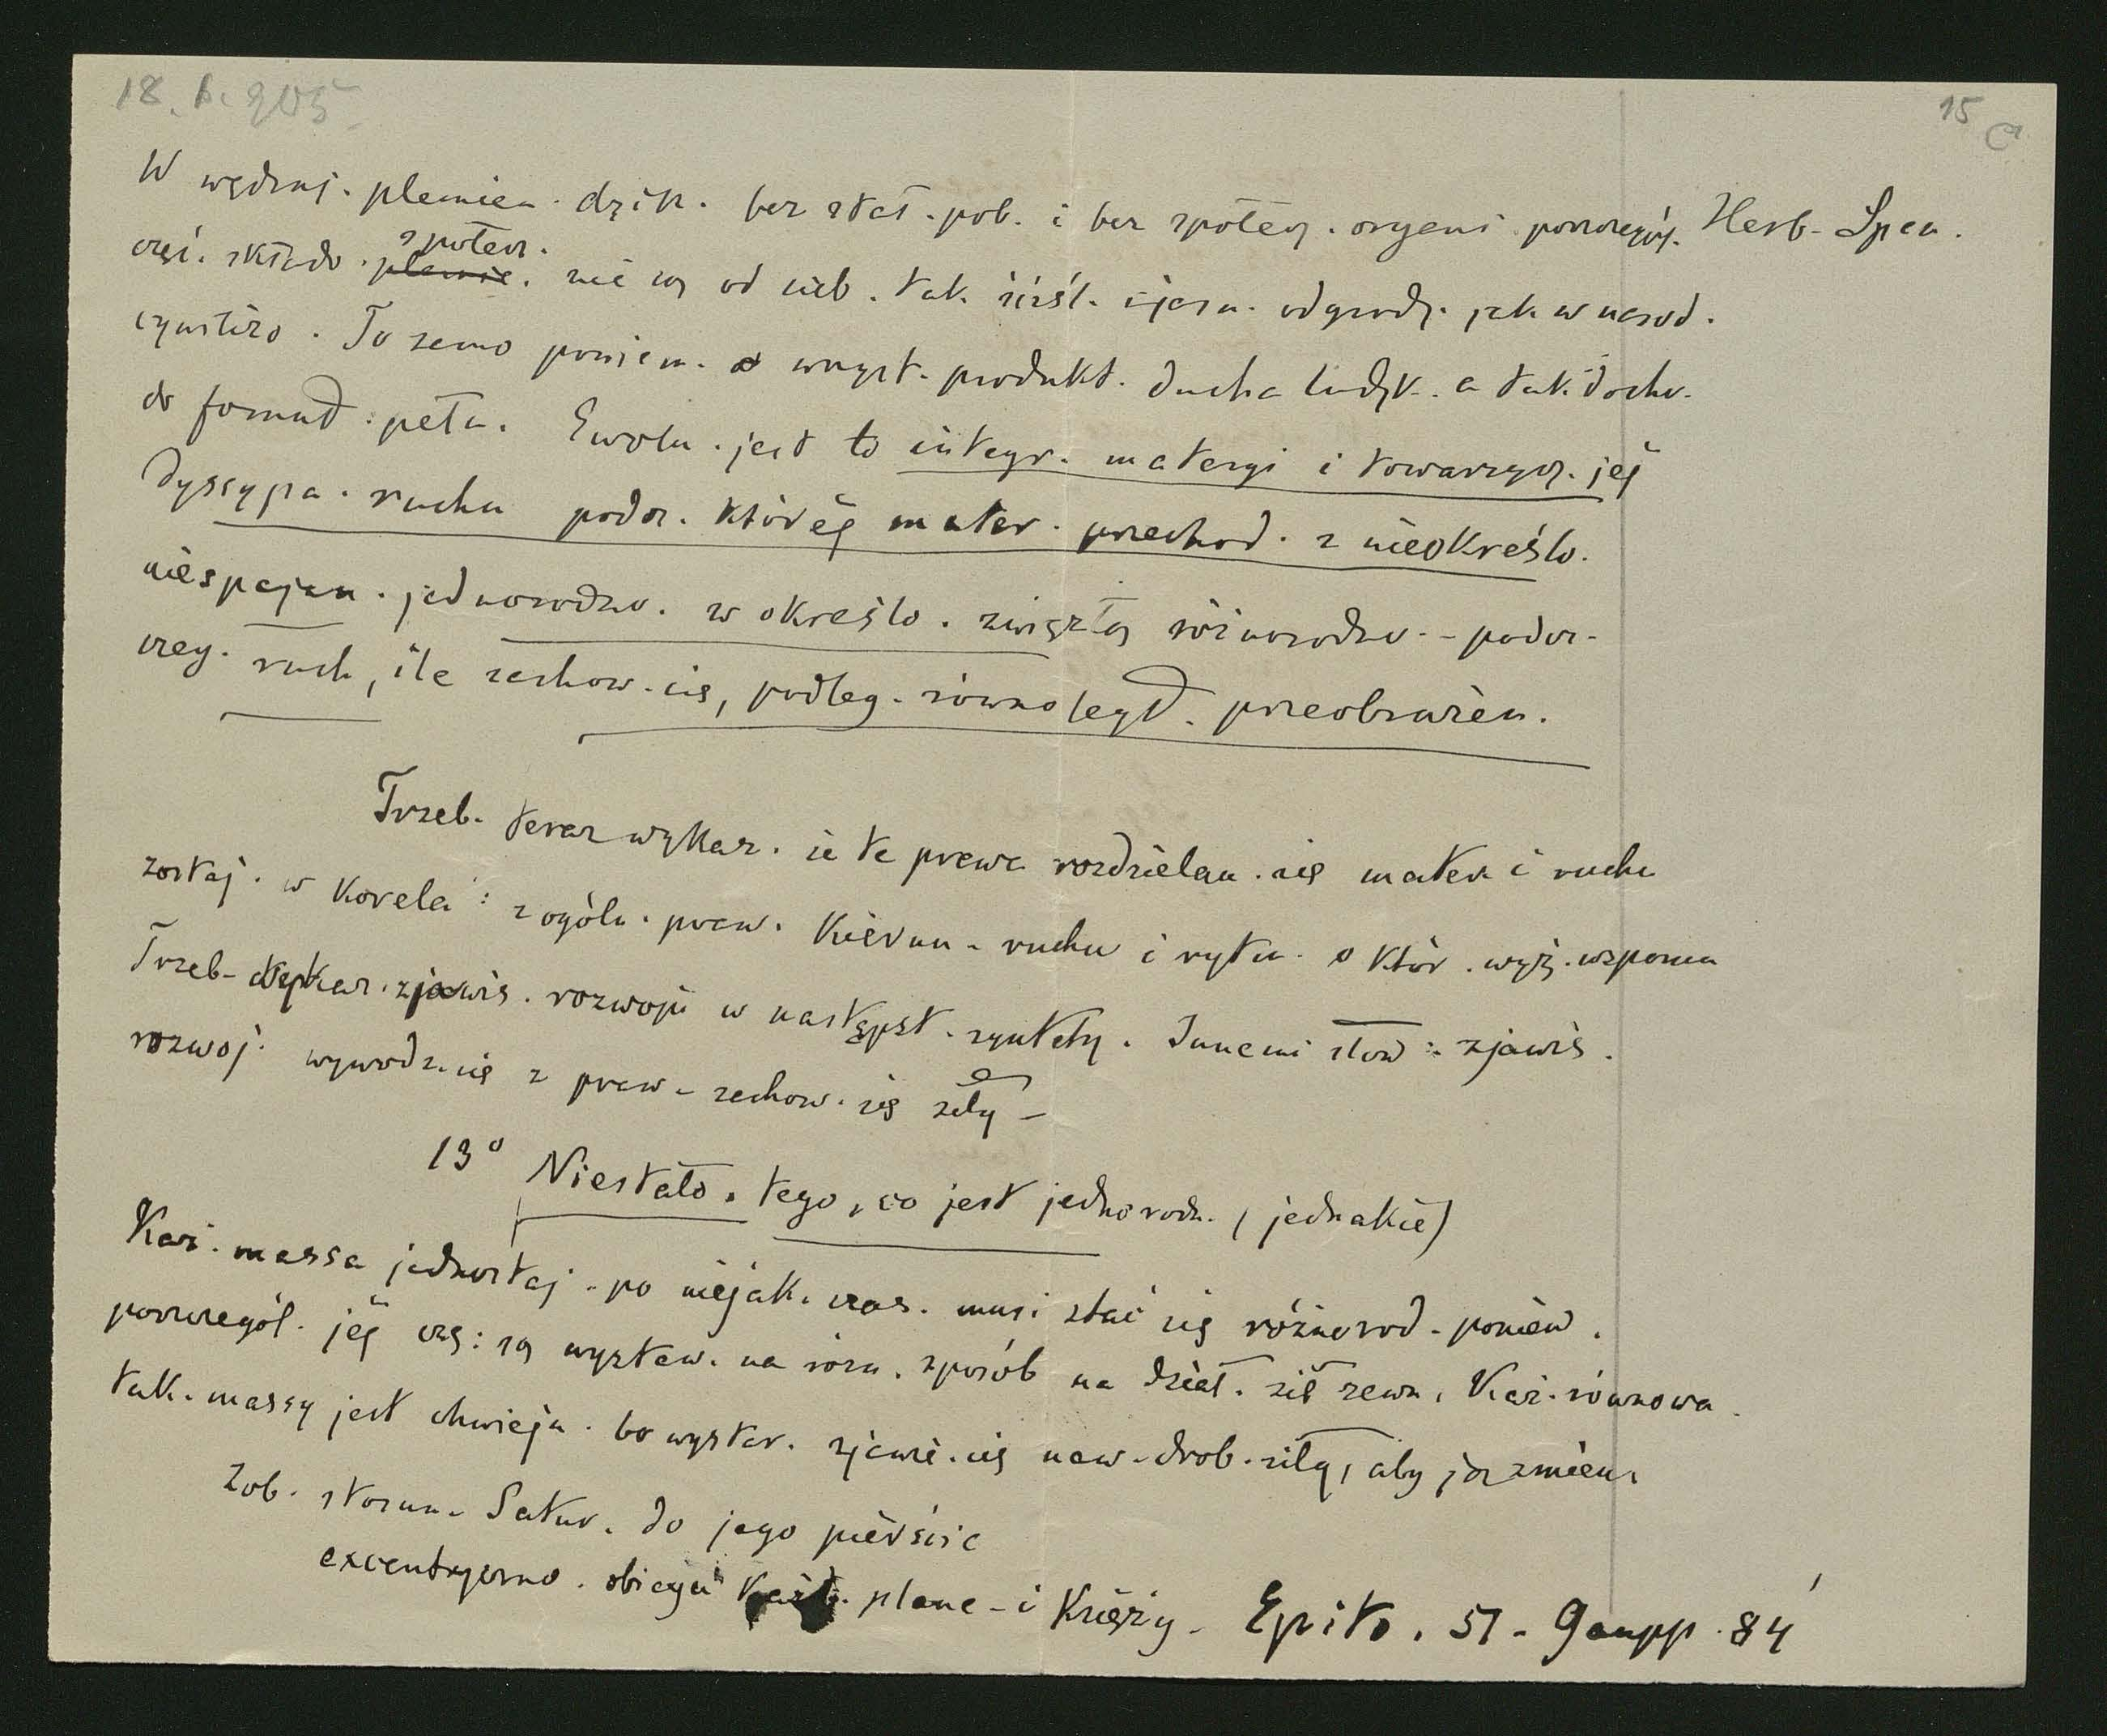 18. b. 205
15
W wędruj. plemien. dzik. bez stał. pob. i bez społecz. organi poszczegól. Herb. Spen.
częś. składo. plemie. społecz. nie są od sieb. tak. ściśl. i jasn. odgrodz. jak w narod.
cywilizo. To samo powiem. o wszyst. produkt. ducha ludzk. a tak. docho.
do formuł. pełn. Ewolu. jest to integr. materyi i towarzysz. jéj
dyssypa. ruchu podcz. któréj mater. przechod. z nieokreślo.
niespajan. jednorodno. w określo. zwięzłą różnorodno. - podcz-
czeg. ruch, ile zachow. się, podleg. równoległ. przeobrażen.
Trzeb. teraz wykaz. że te prawa rozdzielan. się mater. i ruchu
zostaj. w korela: z ogóln. praw. kierun. ruchu i rytm. o któr. wyż. wspomn
Trzeb. wykaz. zjawis. rozwoju w następst. syntety. Innemi słow: zjawis.
rozwoj. wywodz. się z praw. zachow. się siły -
13° Niestało. tego, co jest jednorodn. (jednakie)
Każ. massa jednostaj. po niejak. czas. musi stać się różnorod. poniew.
poszczegól. jéj czę: są wystaw. na różn. sposób na dział. sił zewn. Każ. równowa.
tak. massy jest chwiejn. bo wystar. zjawie. się naw. drob. siły, aby ją zmien.
Zob. stosun. Satur. do jego pierście
excentryczno. obiegu każd. plane. i księży. Epito. 51. Gaupp. 84